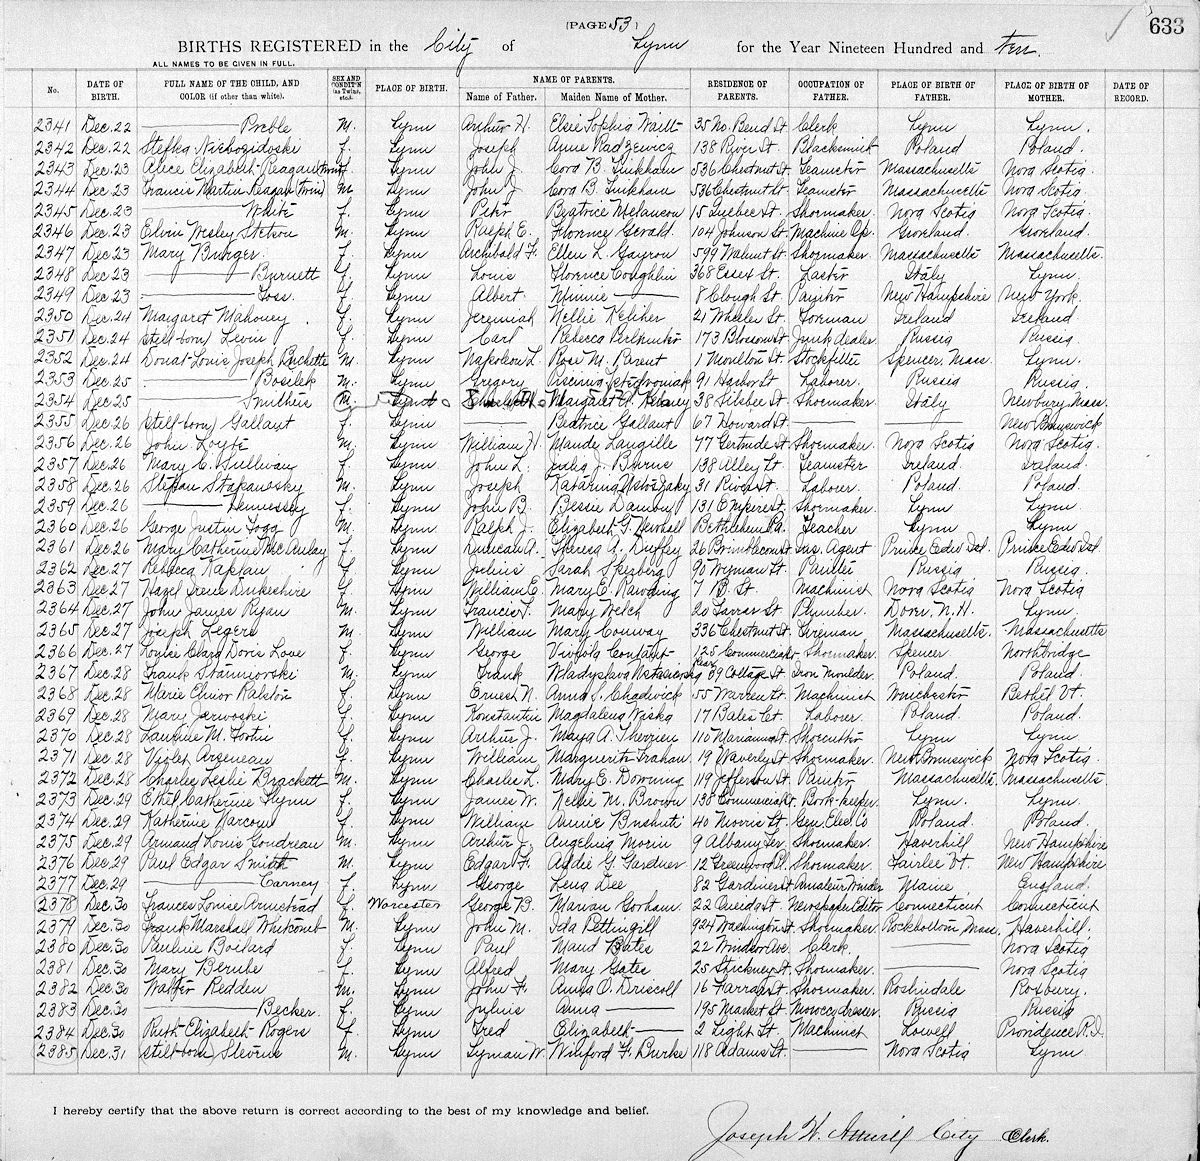 (PAGE 53)
633
BIRTHS REGISTERED in the City of Lynn for the Year Nineteen Hundred and Ten.
ALL NAMES TO BE GIVEN IN FULL.
No. DATE OF BIRTH. FULL NAME OF THE CHILD, AND COLOR (if other than white). SEX AND CONDIT'N (as Twins, etc.) PLACE OF BIRTH. NAME OF PARENTS. Name of Father. Maiden Name of Mother. RESIDENCE OF PARENTS. OCCUPATION OF FATHER. PLACE OF BIRTH OF FATHER. PLACE OF BIRTH OF MOTHER. DATE OF RECORD.
2341 Dec. 22 Preble M. Lynn Arthur H. Elsie Sophia Waitt 35 No. Bend St Clerk Lynn Lynn.
2342 Dec. 22 Stefka Niebozidoski f. Lynn Joseph Annie Radzewicz 138 River St Blacksmith Poland Poland.
2343 Dec. 23 Alice Elizabeth Reagan (twin) f. Lynn John J. Cora B. Linkham 536 Chestnut St Teamster Massachusetts Nova Scotia.
2344 Dec. 23 Francis Martin Reagan (twin) M Lynn John J. Cora B. Linkham 536 Chestnut St Teamster Massachusetts Nova Scotia
2345 Dec. 23 White f. Lynn Peter Beatrice Melancon 15 Quebec St. Shoemaker Nova Scotia Nova Scotia.
2346 Dec. 23 Elvin Wesley Stetson M. Lynn Ralph E. Florence Gerald. 104 Johnson St Machine Op. Groveland. Groveland.
2347 Dec. 23 Mary Burger f. Lynn Archibald F. Ellen L. Gayron 599 Walnut St. Shoemaker Massachusetts Massachusetts.
2348 Dec. 23 Burnett f. Lynn Louis Florence Coughlin 368 Essex St. Laster Italy Lynn.
2349 Dec. 23 Foss. f. Lynn Albert Minnie 8 Clough St Painter New Hampshire New York.
2350 Dec. 24 Margaret Mahoney f. Lynn Jeremiah Nellie Keliher 21 Wheeler St Foreman Ireland Ireland
2351 Dec. 24 (still-born) Levin f. Lynn Carl Rebecca 173 Blossom St Junk dealer Russia Russia.
2352 Dec. 24 Donat Louis Joseph Bechette M. Lynn Napoleon L. Rose M. Brent 1 Moulton St. Stockfitter Spencer, Mass. Lynn.
2353 Dec. 25 Bosilek M. Lynn Gregory 91 Harbor St Laborer. Russia Russia.
2354 Dec. 25 Smithers M. Lynn Charles Margaret H. 38 Silsbee St. Shoemaker Italy Newbury, Mass.
2355 Dec. 26 (still-born) Gallant f. Lynn Beatrice Gallant 67 Howard St. New Brunswick
2356 Dec. 26 John Loyte M. Lynn William H. Maude Langille 77 Gertrude St Shoemaker. Nova Scotia Nova Scotia.
2357 Dec. 26 Mary C. Sullivan f. Lynn John L. Julia J. Burns 138 Alley St Teamster Ireland. Ireland.
2358 Dec. 26 Stefan Stapanosky M. Lynn Joseph Katarina 31 River St. Laborer Poland Poland.
2359 Dec. 26 Hennessey f. Lynn John B. Bessie Damon 131 Empire St. Shoemaker. Lynn Lynn
2360 Dec. 26 George Justin Fogg M. Lynn Ralph J. Elizabeth G. Newhall Bethlehem Pa. Teacher Lynn Lynn
2361 Dec. 26 Mary Catherine McAulay f. Lynn Duncan A. Theresa A. Duffey 26 Brimblecom St Ins. Agent Prince Edw. Isl. Prince Edw. Isl.
2362 Dec. 27 Rebecca Kaplan f. Lynn Julius Sarah Skerberg 90 Wyman St. Painter Russia Russia.
2363 Dec. 27 Hazel Irene Dukeshire f. Lynn William E. Mary E. Rawding 7 B. St. Machinist Nova Scotia Nova Scotia
2364 Dec. 27 John James Ryan M. Lynn Francis L. Mary Welch 20 Farrar St Plumber. Dover N.H. Lynn.
2365 Dec. 27 Joseph Legere M. Lynn William Mary Conway 336 Chestnut St. Fireman Massachusetts. Massachusetts
2366 Dec. 27 Louise Clara Doris Love f. Lynn George Viveola Contant 125 Commercial St Shoemaker. Spencer Northbridge
2367 Dec. 28 Frank Staniniovski M. Lynn Frank Wladyslava Rear 39 Cottage St. Iron Moulder. Poland. Poland.
2368 Dec. 28 Merie Elinor Ralston f. Lynn Ernest N. Anna J. Chadwick 55 Warren St. Machinist Winchester Bethel Vt.
2369 Dec. 28 Mary Jerwoski f. Lynn Konstantin Magdalena Niska 17 Bates Ct. Laborer. Poland. Poland.
2370 Dec. 28 Laurine M. Fortin f. Lynn Arthur J. Marya A. Therrien 110 Marianna St. Shoecutter Lynn Lynn
2371 Dec. 28 Violet Arseneau f. Lynn William Marguerite Trahan. 19 Waverly St. Shoemaker. New Brunswick Nova Scotia.
2372 Dec. 28 Charles Leslie Brackett M. Lynn Charles L. Mary E. Downing 119 Jefferson St. Painter Massachusetts. Massachusetts.
2373 Dec. 29 Ethel Catherine Flynn f. Lynn James W. Nellie M. Brown 138 Commercial St. Book-keeper. Lynn. Lynn.
2374 Dec. 29 Katherine Narcom f. Lynn William Annie Bushuti 40 Morris St. Gen. Elec. Co Poland Poland.
2375 Dec. 29 Armand Louis Goudreau M. Lynn Arthur J. Angelina Morin 9 Albany Ter. Shoemaker. Haverhill New Hampshire
2376 Dec. 29 Paul Edgar Smith M. Lynn Edgar F. Addie G. Gardner 12 Greenwood Pl. Shoemaker. Fairlee Vt New Hampshire
2377 Dec. 29 Carney f. Lynn George Lena Dee 82 Gardiner St. Armature Winder Maine England.
2378 Dec. 30 Frances Louise Armstead f. Worcester George B. Marian Gorham. 22 Oneida St Newspaper Editor Connecticut Connecticut
2379 Dec. 30 Frank Marshall Whitcomb M. Lynn John M. Ida Pettingill 924 Washington St Shoemaker. Rockbottom Mass. Haverhill.
2380 Dec. 30 Pauline Boilard f. Lynn Paul Maud Bates 22 Windsor Ave. Clerk Nova Scotia
2381 Dec. 30 Mary Berube f. Lynn Alfred Mary Gates 25 Stickney St Shoemaker. Nova Scotia
2382 Dec. 30 Walter Redden M. Lynn John F. Anna O. Driscoll 16 Farrar St Shoemaker. Roslindale Roxbury.
2383 Dec. 30 Becker. f. Lynn Julius Anna 195 Market St Morocco dresser. Russia Russia
2384 Dec. 30 Ruth Elizabeth Rogers f. Lynn Fred Elizabeth 2 Light St. Machinist Lowell Providence R.I.
2385 Dec. 31 still-born Stevens M. Lynn Lyman W. Winford F. Burke 118 Adams St. Nova Scotia Lynn
I hereby certify that the above return is correct according to the best of my knowledge and belief.
Joseph W. Attwill City Clerk.